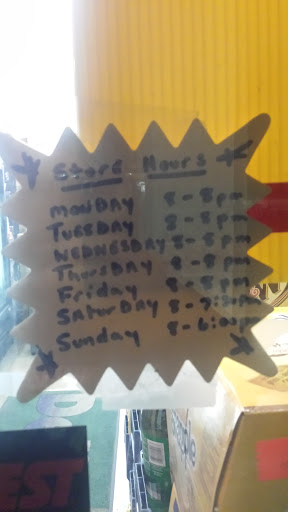 Store Hours
MONDAY 8-8pm
TUESDAY 8-8pm
WEDNESDAY 8-8pm
THURSDAY 8-8pm
Friday 8-8pm
SATURDAY 8-7:30pm
Sunday 8-6:00pm
EST